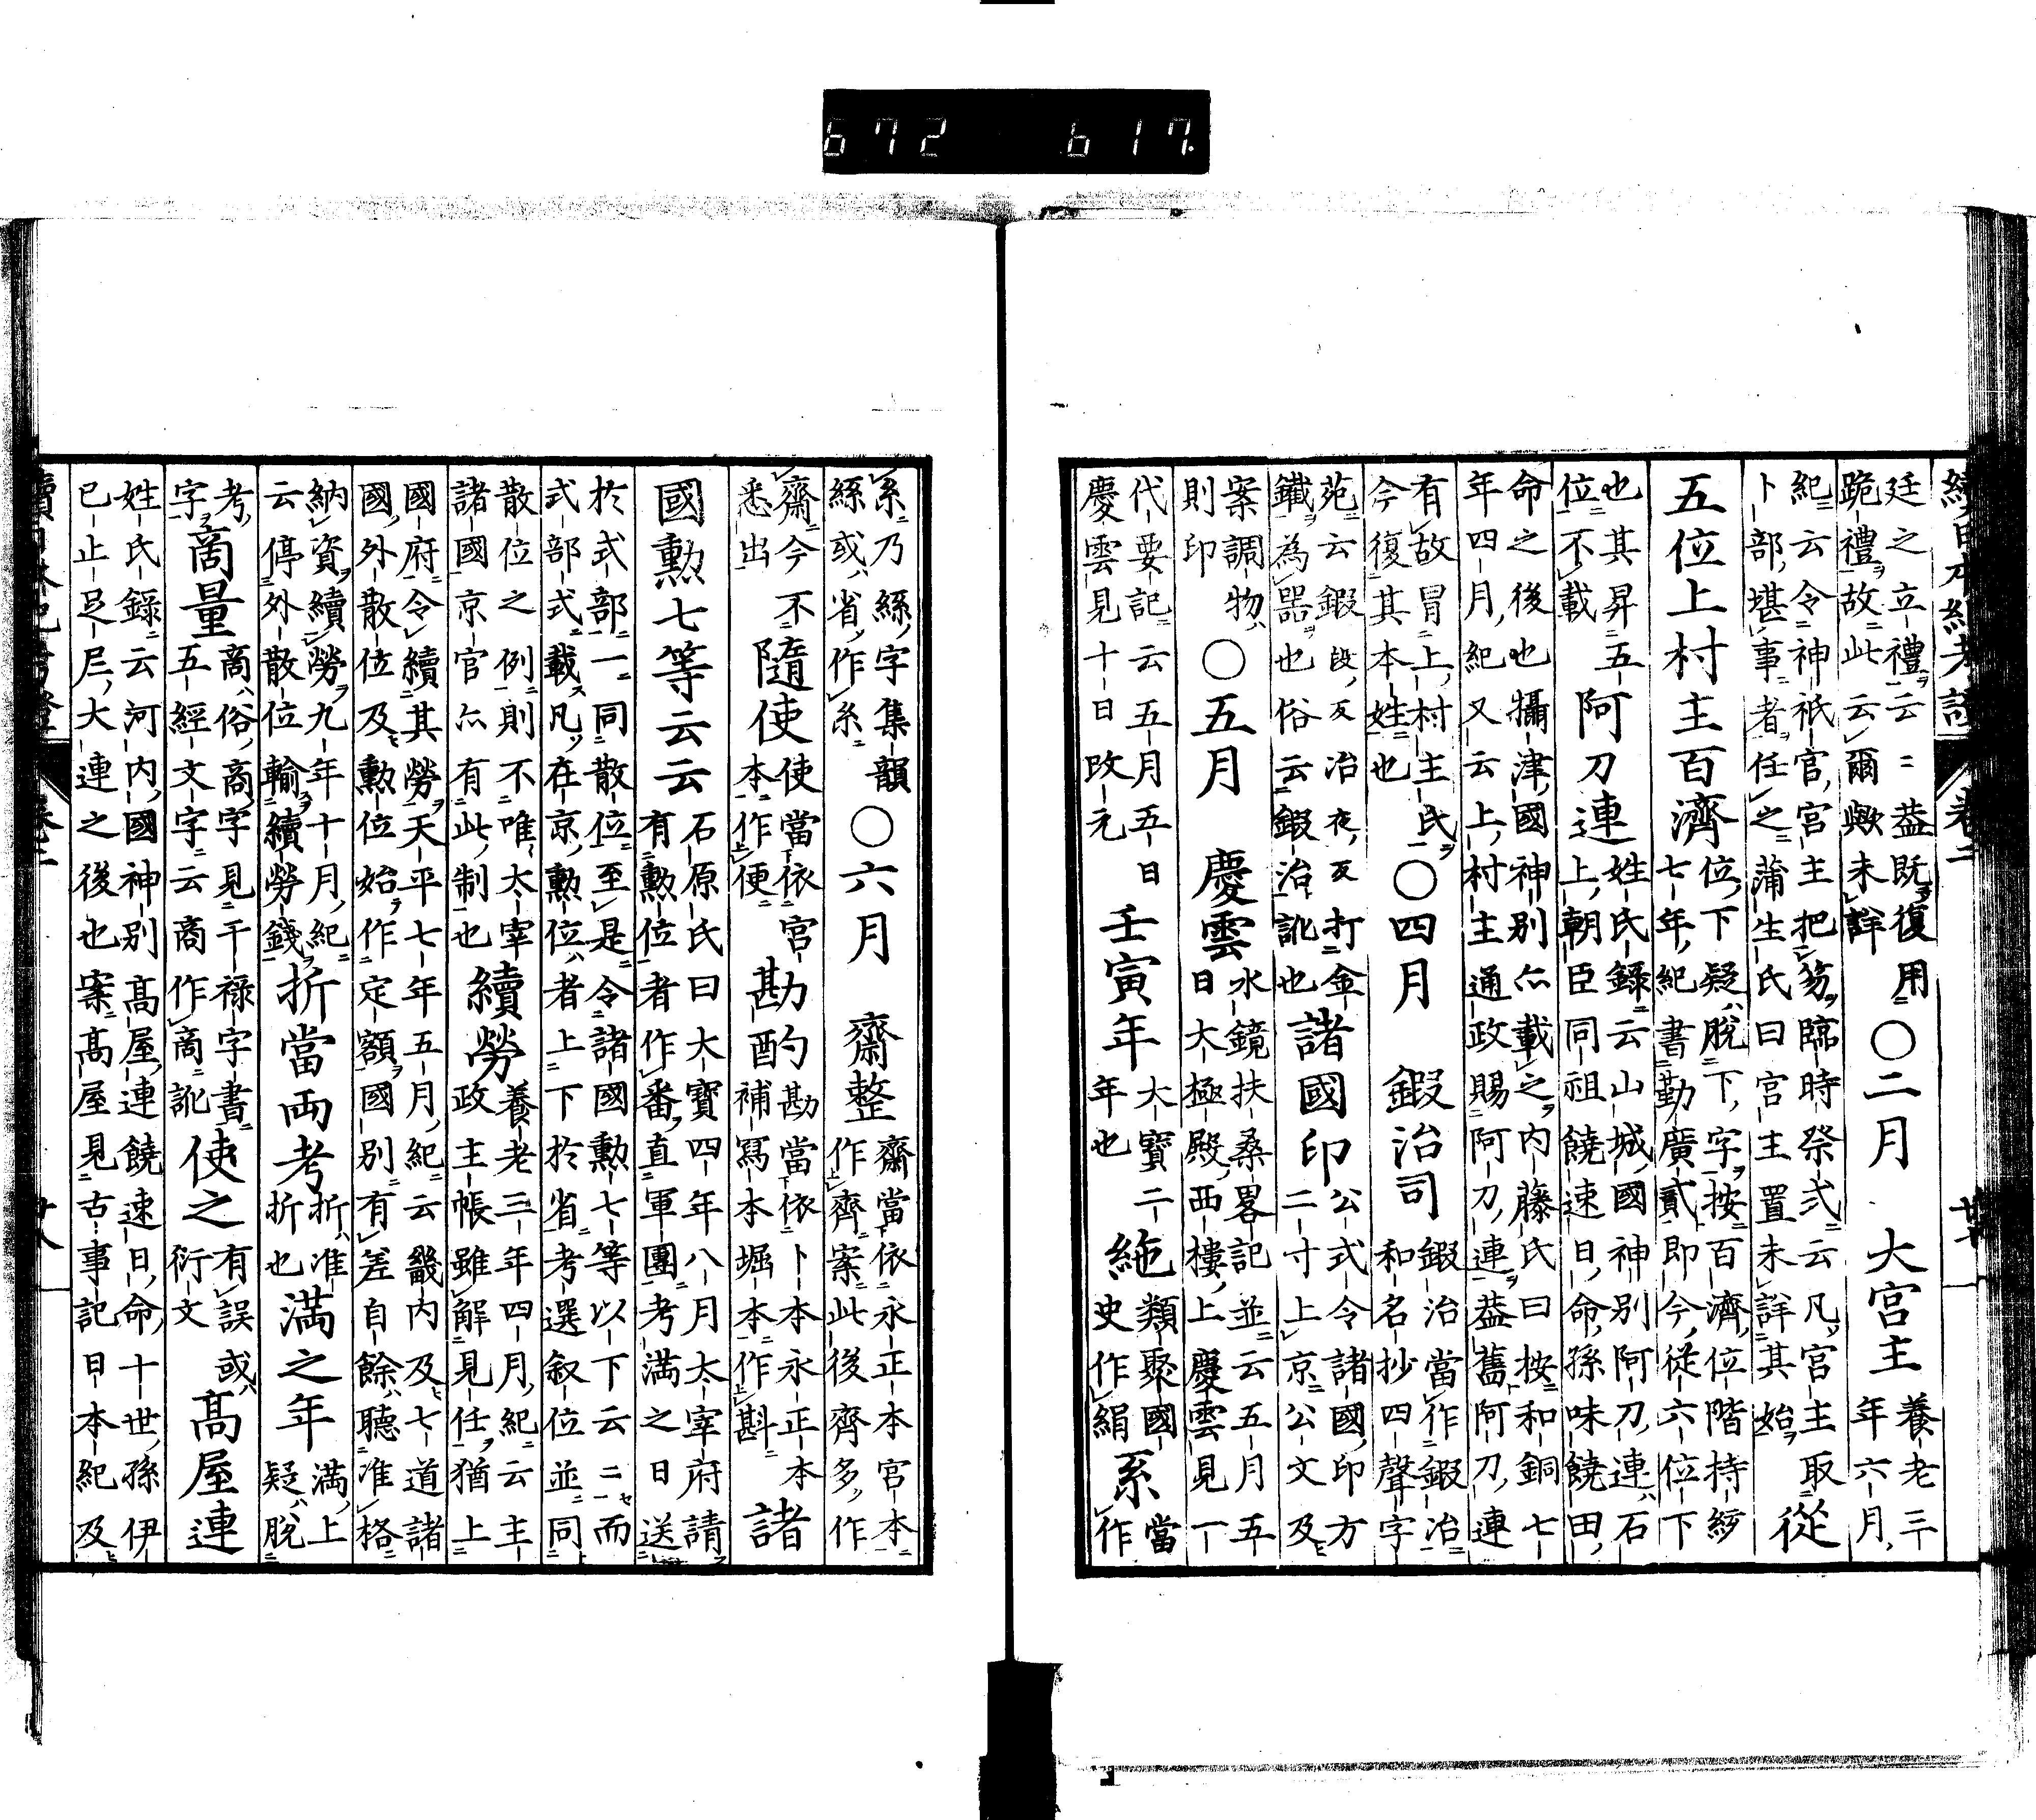 廷之立禮云〻蓋既復用
跪禮故此云爾歟未詳
○二月　大宮主
養老三
年六月
紀云令神祇官宮主把笏臨時祭式云凡宮主取
卜部堪事者任之蒲生氏曰宮主置未詳其始
從
五位上村主百濟
位下疑脫下字按百濟位階持綂
七年紀書勤廣貳即今從六位下
也其昇五
位不載
阿刀連
姓氏錄云山城國神別阿刀連石
上朝臣同祖饒速日命孫味饒田
命之後也攝津國神別亦載之内藤氏曰按和銅七
年四月紀又云上村主通政賜阿刀連蓋舊阿刀連
有故冒上村主氏
今復其本姓也
○四月　鍜治司
鍜治當作鍛冶
和名抄四聲字
苑云鍛段反冶夜反打金
鐵為器也俗云鍜治訛也
諸國印
公式令諸國印方
二寸上京公文及
案調物
則印
○五月　慶雲
水鏡扶桑畧記並云五月五
日大極殿西樓上慶雲見一
代要記云五月五日
慶雲見十日改元
壬寅年
大寶二
年也
絁
類聚國
史作絹
系
當
作
系乃絲字集韻
絲或省作糸
○六月　齋整
齋當依永正本宮本
作齊案此後齊多作
齋今不
悉出
隨使
使當依宮
本作便
勘酌
勘當依卜本永正本
補寫本堀本作斟
諸
國勳七等云云
石原氏曰大寶四年八月太宰府請
有勳位者作番直軍團考滿之日送
於式部一同散位至是令諸國勳七等以下云〻而
式部式載凡在京勳位者上下於省考選叙位並同
散位之例則不唯太宰
諸國京官亦有此制也
續勞
養老三年四月紀云主
政主帳雖解見任猶上
國府令續其勞天平七年五月紀云畿内及七道諸
國外散位及勳位始作定額國別有差自餘聽准格
納資續勞九年十月紀
云停外散位輸續勞錢
折當両考
折准
折也
滿之年
滿上
疑脫
考
字
啇量
商俗啇字見干祿字書
五經文字云商作啇訛
使之
有誤或
衍文
髙屋連
姓氏錄云河内國神別髙屋連饒速日命十世孫伊
已止足尼大連之後也案髙屋見古事記日本紀及